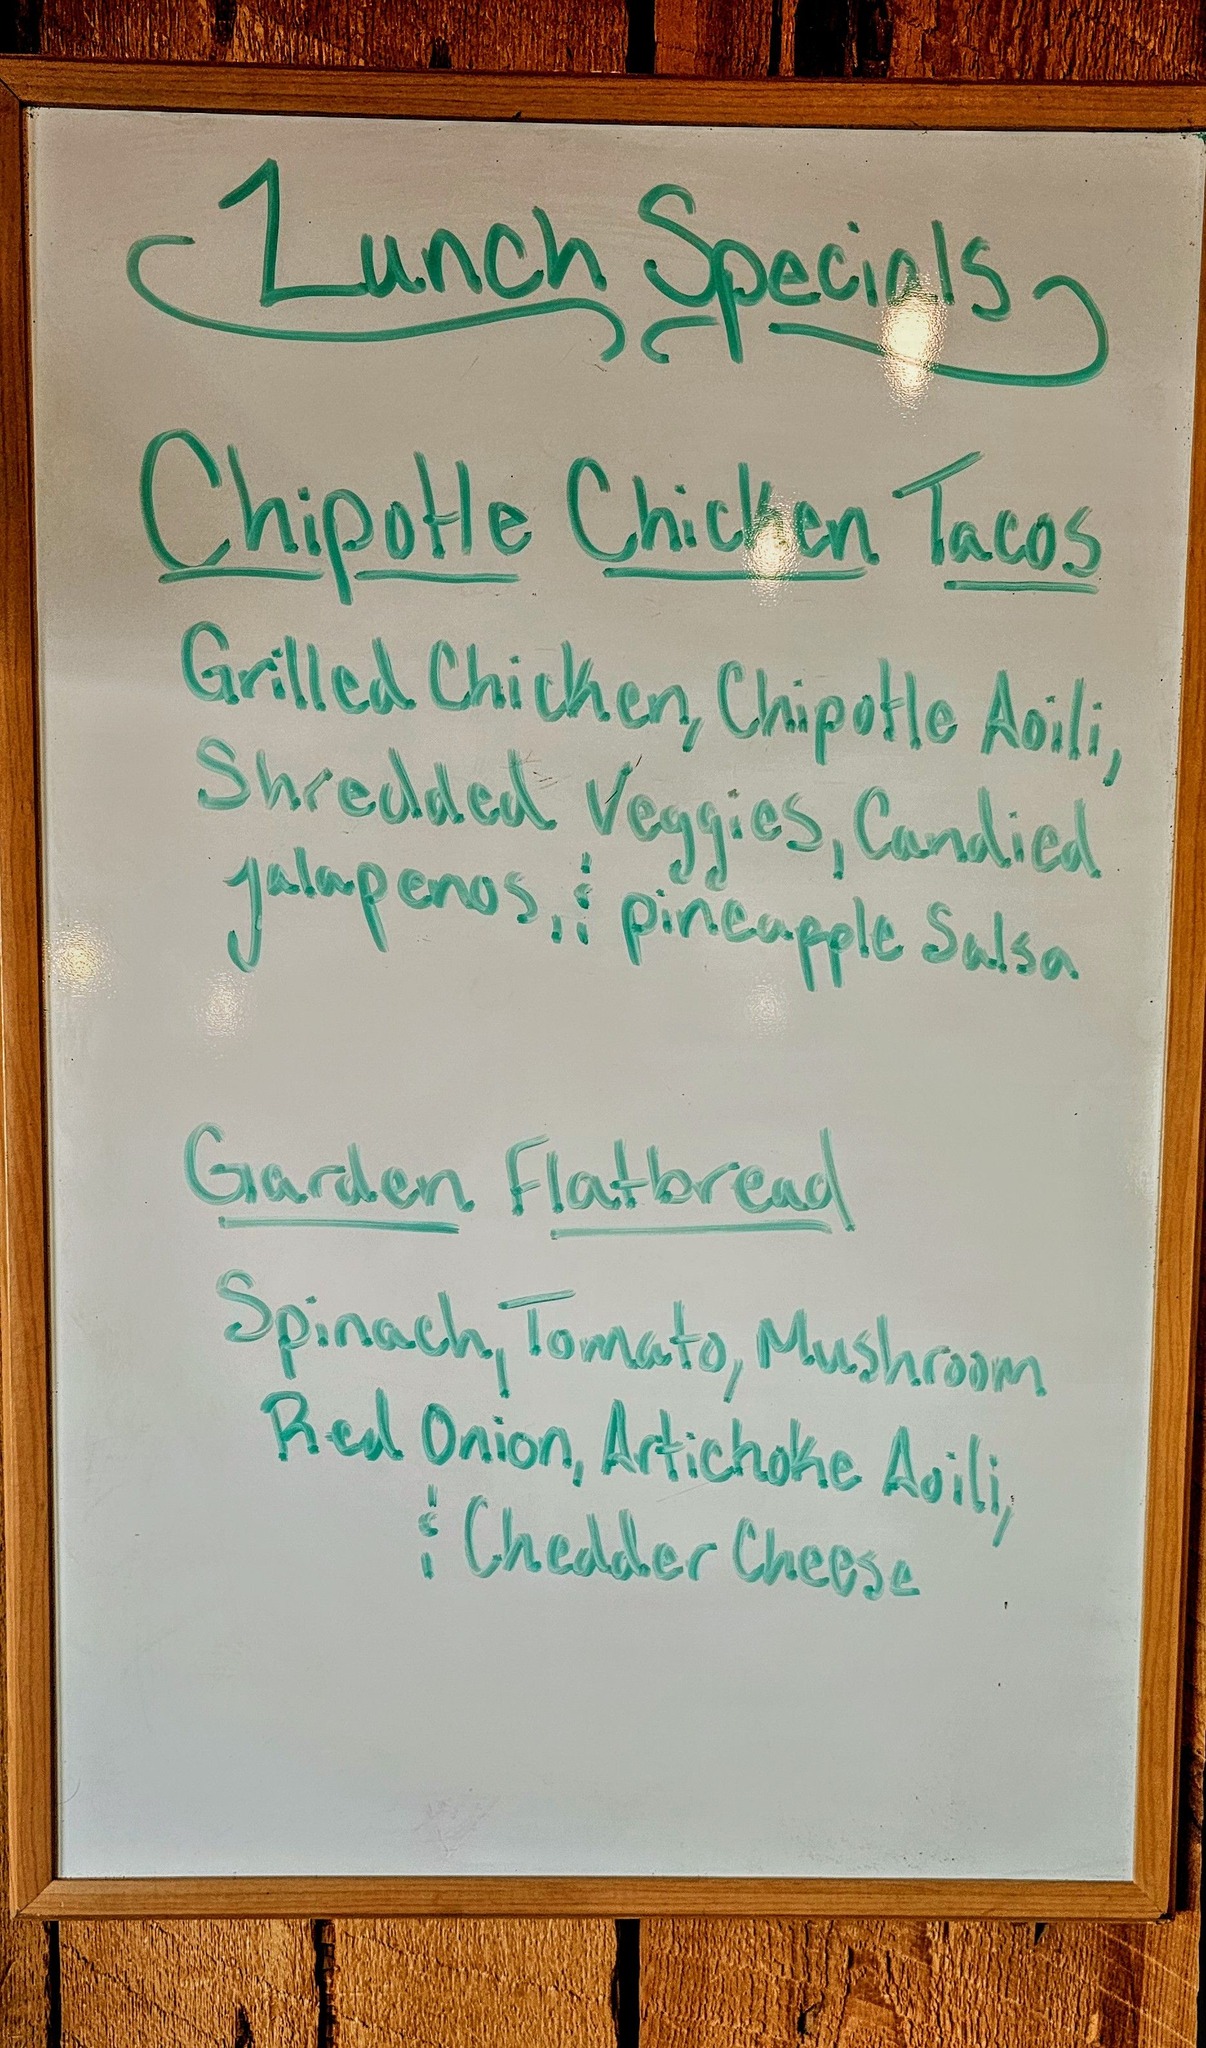 Lunch Specials
Chipotle Chicken Tacos
Grilled Chicken, Chipotle Aoili,
Shredded Veggies, Candied
jalapenos, & pineapple Salsa
Garden Flatbread
Spinach, Tomato, Mushroom
Red Onion, Artichoke Aoili,
& Chedder Cheese